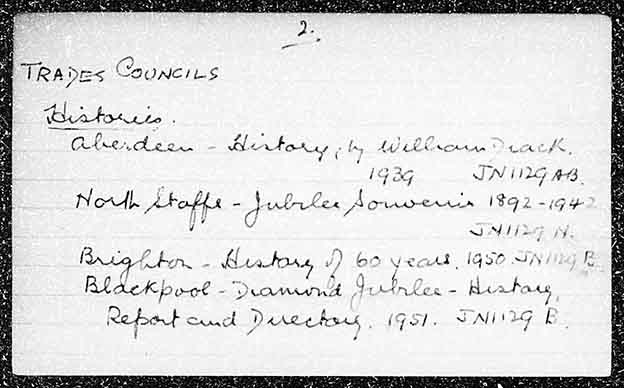 2.
TRADES COUNCILS
Histories.
Aberdeen - History, by William Diack.
1939 JN1129 AB.
North Staffs - Jubilee Souvenir 1892-1942
JN1129 N.
Brighton - History of 60 years. 1950 JN1129 B.
Blackpool - Diamond Jubilee - History,
Report and Directory. 1951. JN1129 B.